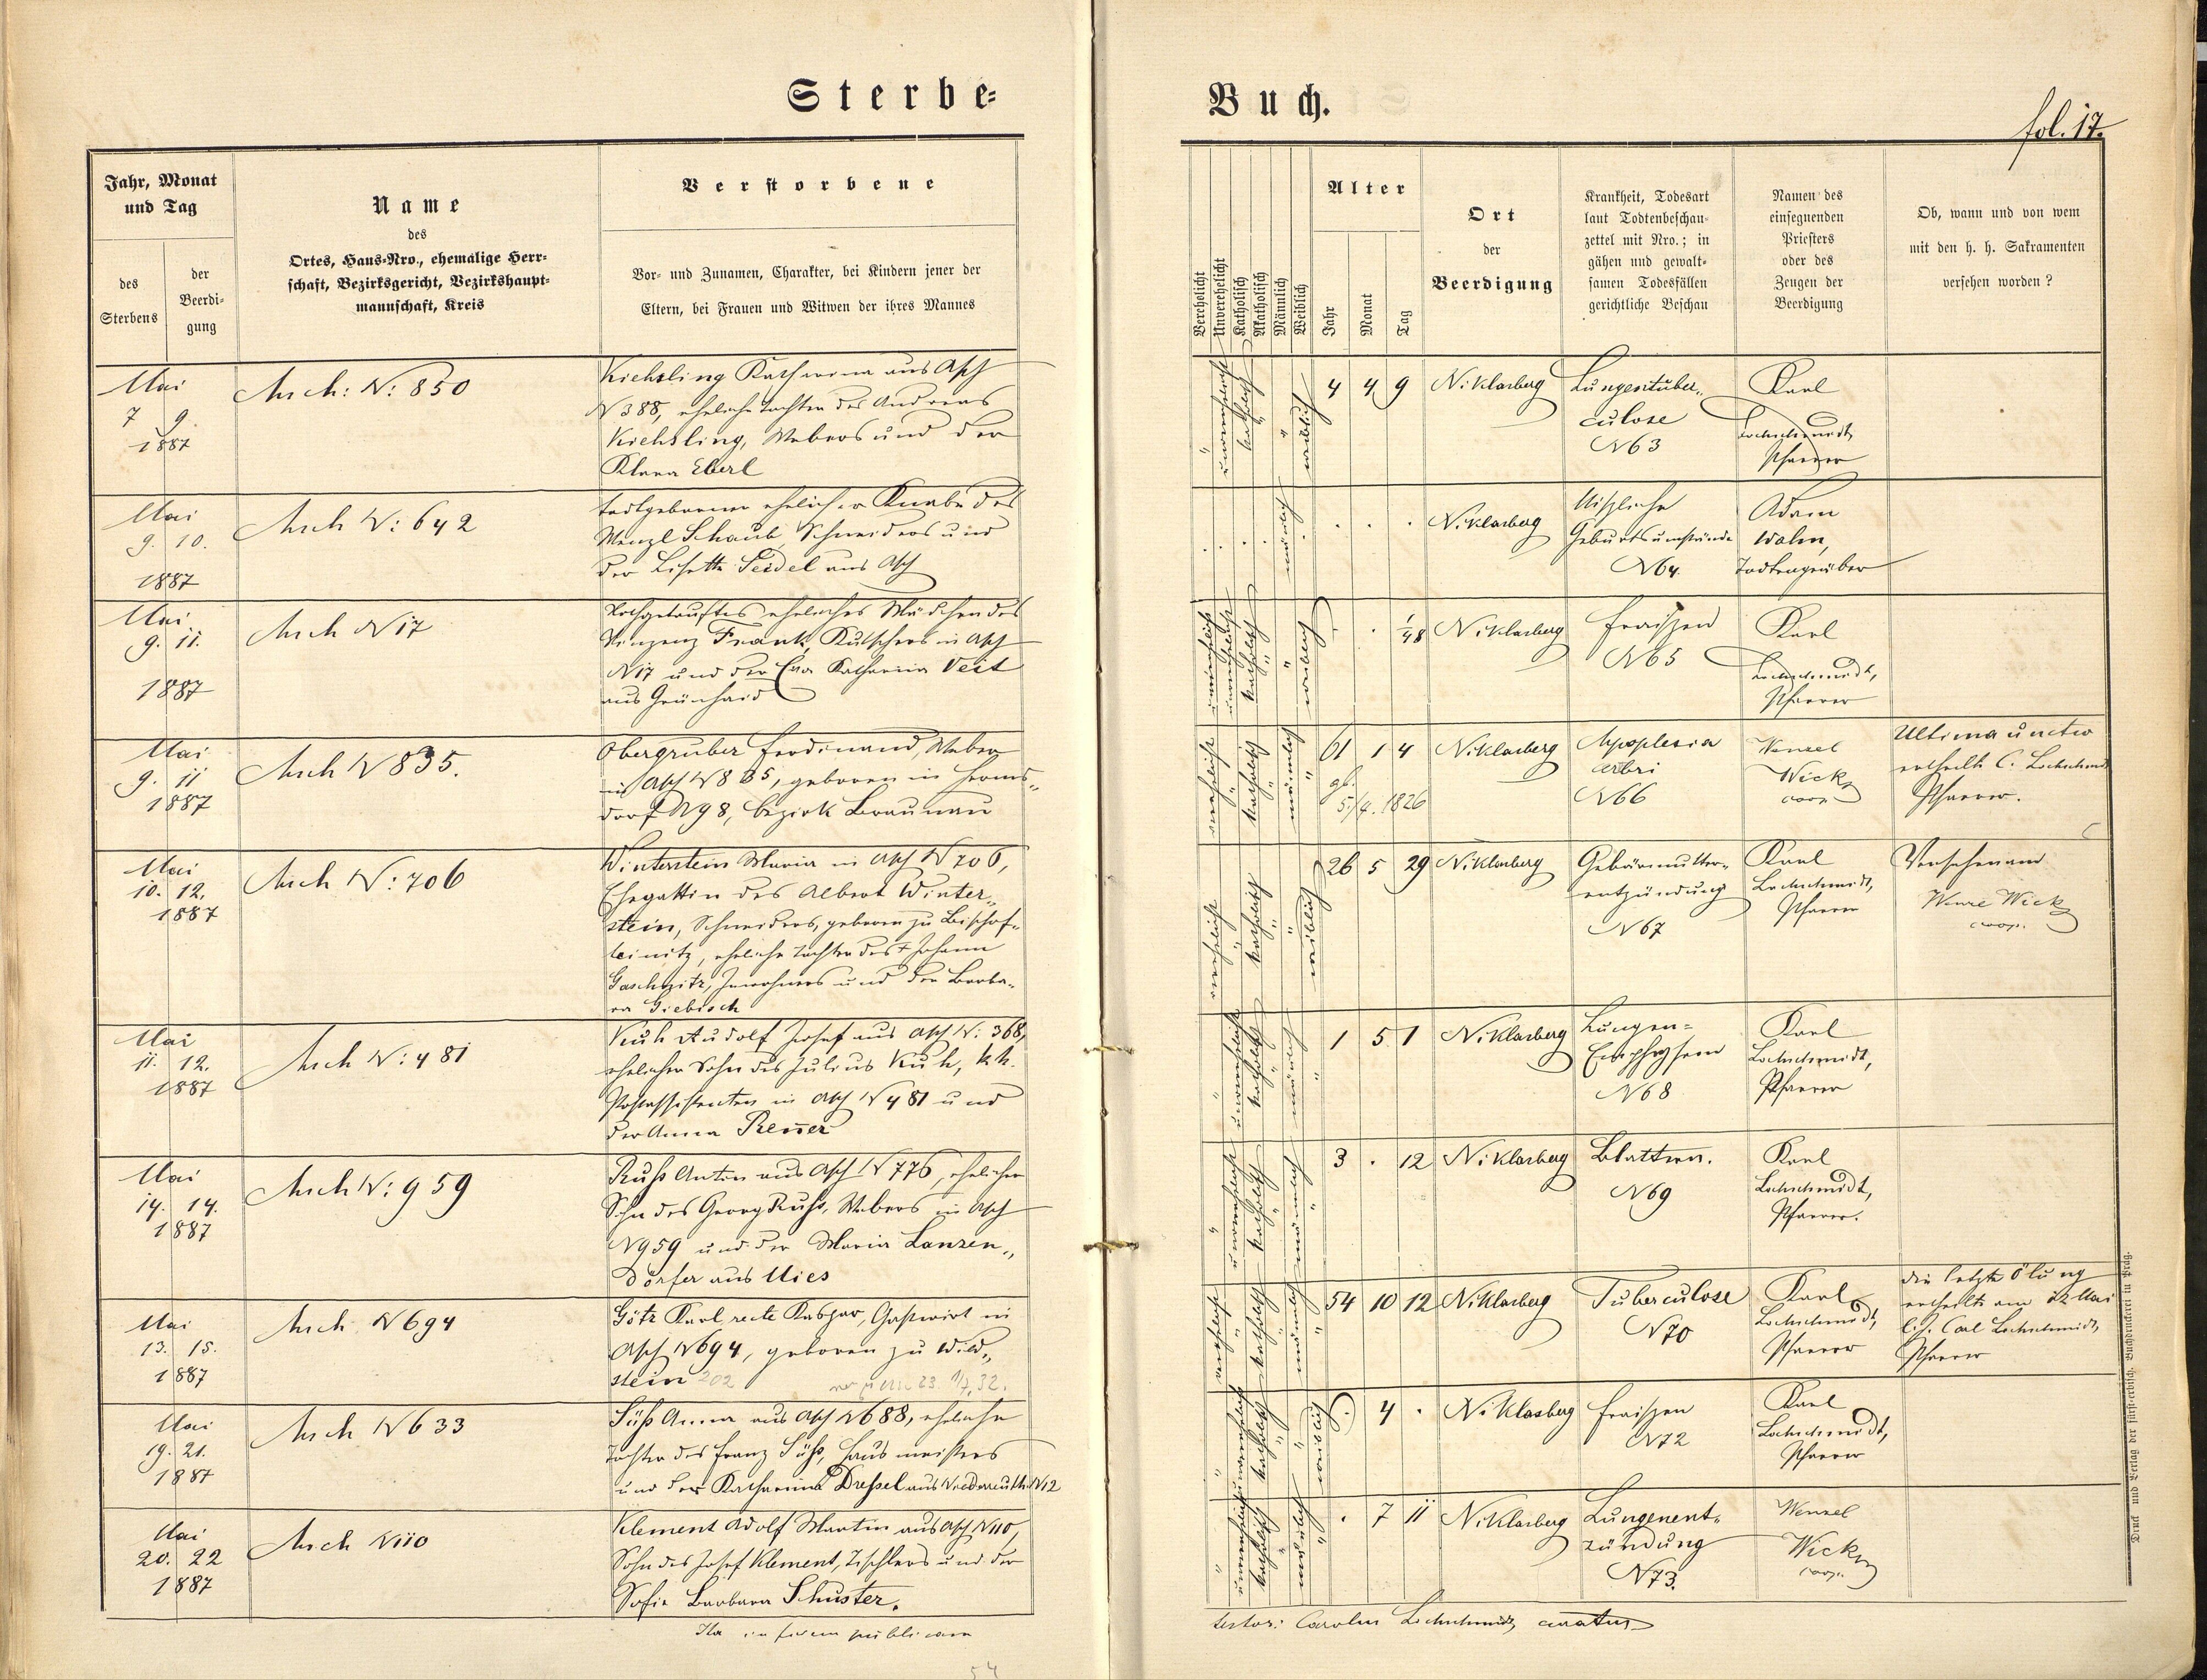 Sterbe-
Buch.
fol. 17.
Jahr, Monat
und Tag
des
Sterbens
der
Beerdi-
gung
Name
des
Ortes, Haus-Nro., ehemalige Herr-
schaft, Bezirksgericht, Bezirkshaupt-
mannschaft, Kreis
Verstorbene
Vor- und Zunamen, Charakter, bei Kindern jener der
Eltern, bei Frauen und Witwen der ihres Mannes
Verehelicht
Unverehelicht
Katholisch
Akatholisch
Männlich
Weiblich
Alter
Jahr
Monat
Tag
Ort
der
Beerdigung
Krankheit, Todesart
laut Todtenbeschau-
zettel mit Nro.; in
gähen und gewalt-
samen Todesfällen
gerichtliche Beschau
Namen des
einsegnenden
Priesters
oder des
Zeugen der
Beerdigung
Ob, wann und von wem
mit den h. h. Sakramenten
versehen worden?
Mai
7 9.
1887
Asch: N: 850
Kiehsling Katharina aus Asch
N 388, eheliche Tochter des Andreas
Kiehsling, Webers und der
Klara Eberl
unverehelicht
katholisch
weiblich
4 4 9
Niklasberg
Lungentuber-
culose
N 63
Karl
Lochschmidt,
Pfarrer
Mai
9. 10.
1887
Asch N: 642
todtgeborener ehelicher Knabe des
Wenzl Schaub Schneiders und
der Lisette Seidel aus Asch
männlich
Niklasberg
Mißliche
Geburtsumstände
N 64.
Adam
Todtengräber
Mai
9. 11.
1887
Asch N 17
Nothgetauftes eheliches Mädchen des
Vinzenz Frank, Kutschers in Asch
N 17 und der Eva Katharina Veit
aus Grünhaid
unverehelicht
katholisch
weiblich
1/48
Niklasberg
Fraißen
N 65
Karl
Lochschmidt,
Pfarrer
Mai
9. 11
1887
Asch N 835.
Obergruber Ferdinand, Weber
in Asch N 835, geboren in Herms-
dorf N 98, Bezirk Braunau
verehelicht
katholisch
männlich
61 1 4
gb.
5/4. 1826
Niklasberg
Apoplexia
N 66
Wenzel
Wick
coop.
Ultima unctio
ertheilt C. Lochschmidt
Pfarrer.
Mai
10. 12.
1887
Asch N: 706
Winterstein Maria in Asch N 706,
Ehegattin des Albert Winter-
stein, Schneiders, geboren zu Bischof-
teinitz, eheliche Tochter des † Johann
Gaschpitz, Inwohners und der Barba-
ra Giebisch
verehelicht
katholisch
weiblich
26 5 29
Niklasberg
Gebärmutter-
entzündung
N 67
Karl
Lochschmidt,
Pfarrer
Versehen am
Wenzl Wick
coop.
Mai
11. 12.
1887
Asch N: 481
Kuh Rudolf Josef aus Asch N: 368,
ehelicher Sohn des Julius Kuh, kk.
Postassistenten in Asch N 481 und
der Anna Renner
unverehelicht
katholisch
männlich
1 5 1
Niklasberg
Lungen-
Emphysem
N 68
Karl
Lochschmidt,
Pfarrer
Mai
14. 14.
1887
Asch N: 959
Ruhs Anton aus Asch N 776, ehelicher
Sohn des Georg Ruhs, Webers in Asch
N 959 und der Maria Lanzen-
dörfer aus Mies
unverehelicht
katholisch
männlich
3 . 12
Niklasberg
Blattern.
N 69
Karl
Lochschmidt,
Pfarrer.
Mai
13. 15.
1887
Asch N 694
Götz Karl recte Kaspar, Gastwirt in
Asch N 694, geboren zu Wild-
stein 202
verehelicht
katholisch
männlich
54 10 12
Niklasberg
Tuberculose
N 70
Karl
Lochschmidt,
Pfarrer
die letzte Ölung
ertheilt am 12 Mai
l. J. Carl Lochschmidt,
Pfarrer
Mai
19. 21.
1887
Asch N 633
Süß Anna aus Asch N 688, eheliche
Tochter des Franz Süß, Hausmeisters
und der Katharina Dressel aus Niederreuth N 12
unverehelicht
katholisch
weiblich
. 4 .
Niklasberg
Fraisen
N 72
Karl
Lochschmidt,
Pfarrer
Mai
20. 22
1887
Asch N 110
Klement Adolf Martin aus Asch N 110,
Sohn des Josef Klement, Tischlers und der
Sofie Barbara Schuster.
unverehelicht
katholisch
männlich
. 7 11
Niklasberg
Lungenent-
zündung
N 73.
Wenzel
Wick
coop.
Ita in fidem publicam
testor: Carolus Lochschmidt, curatus
54
Druck und Verlag der fürsterzbisch. Buchdruckerei in Prag.